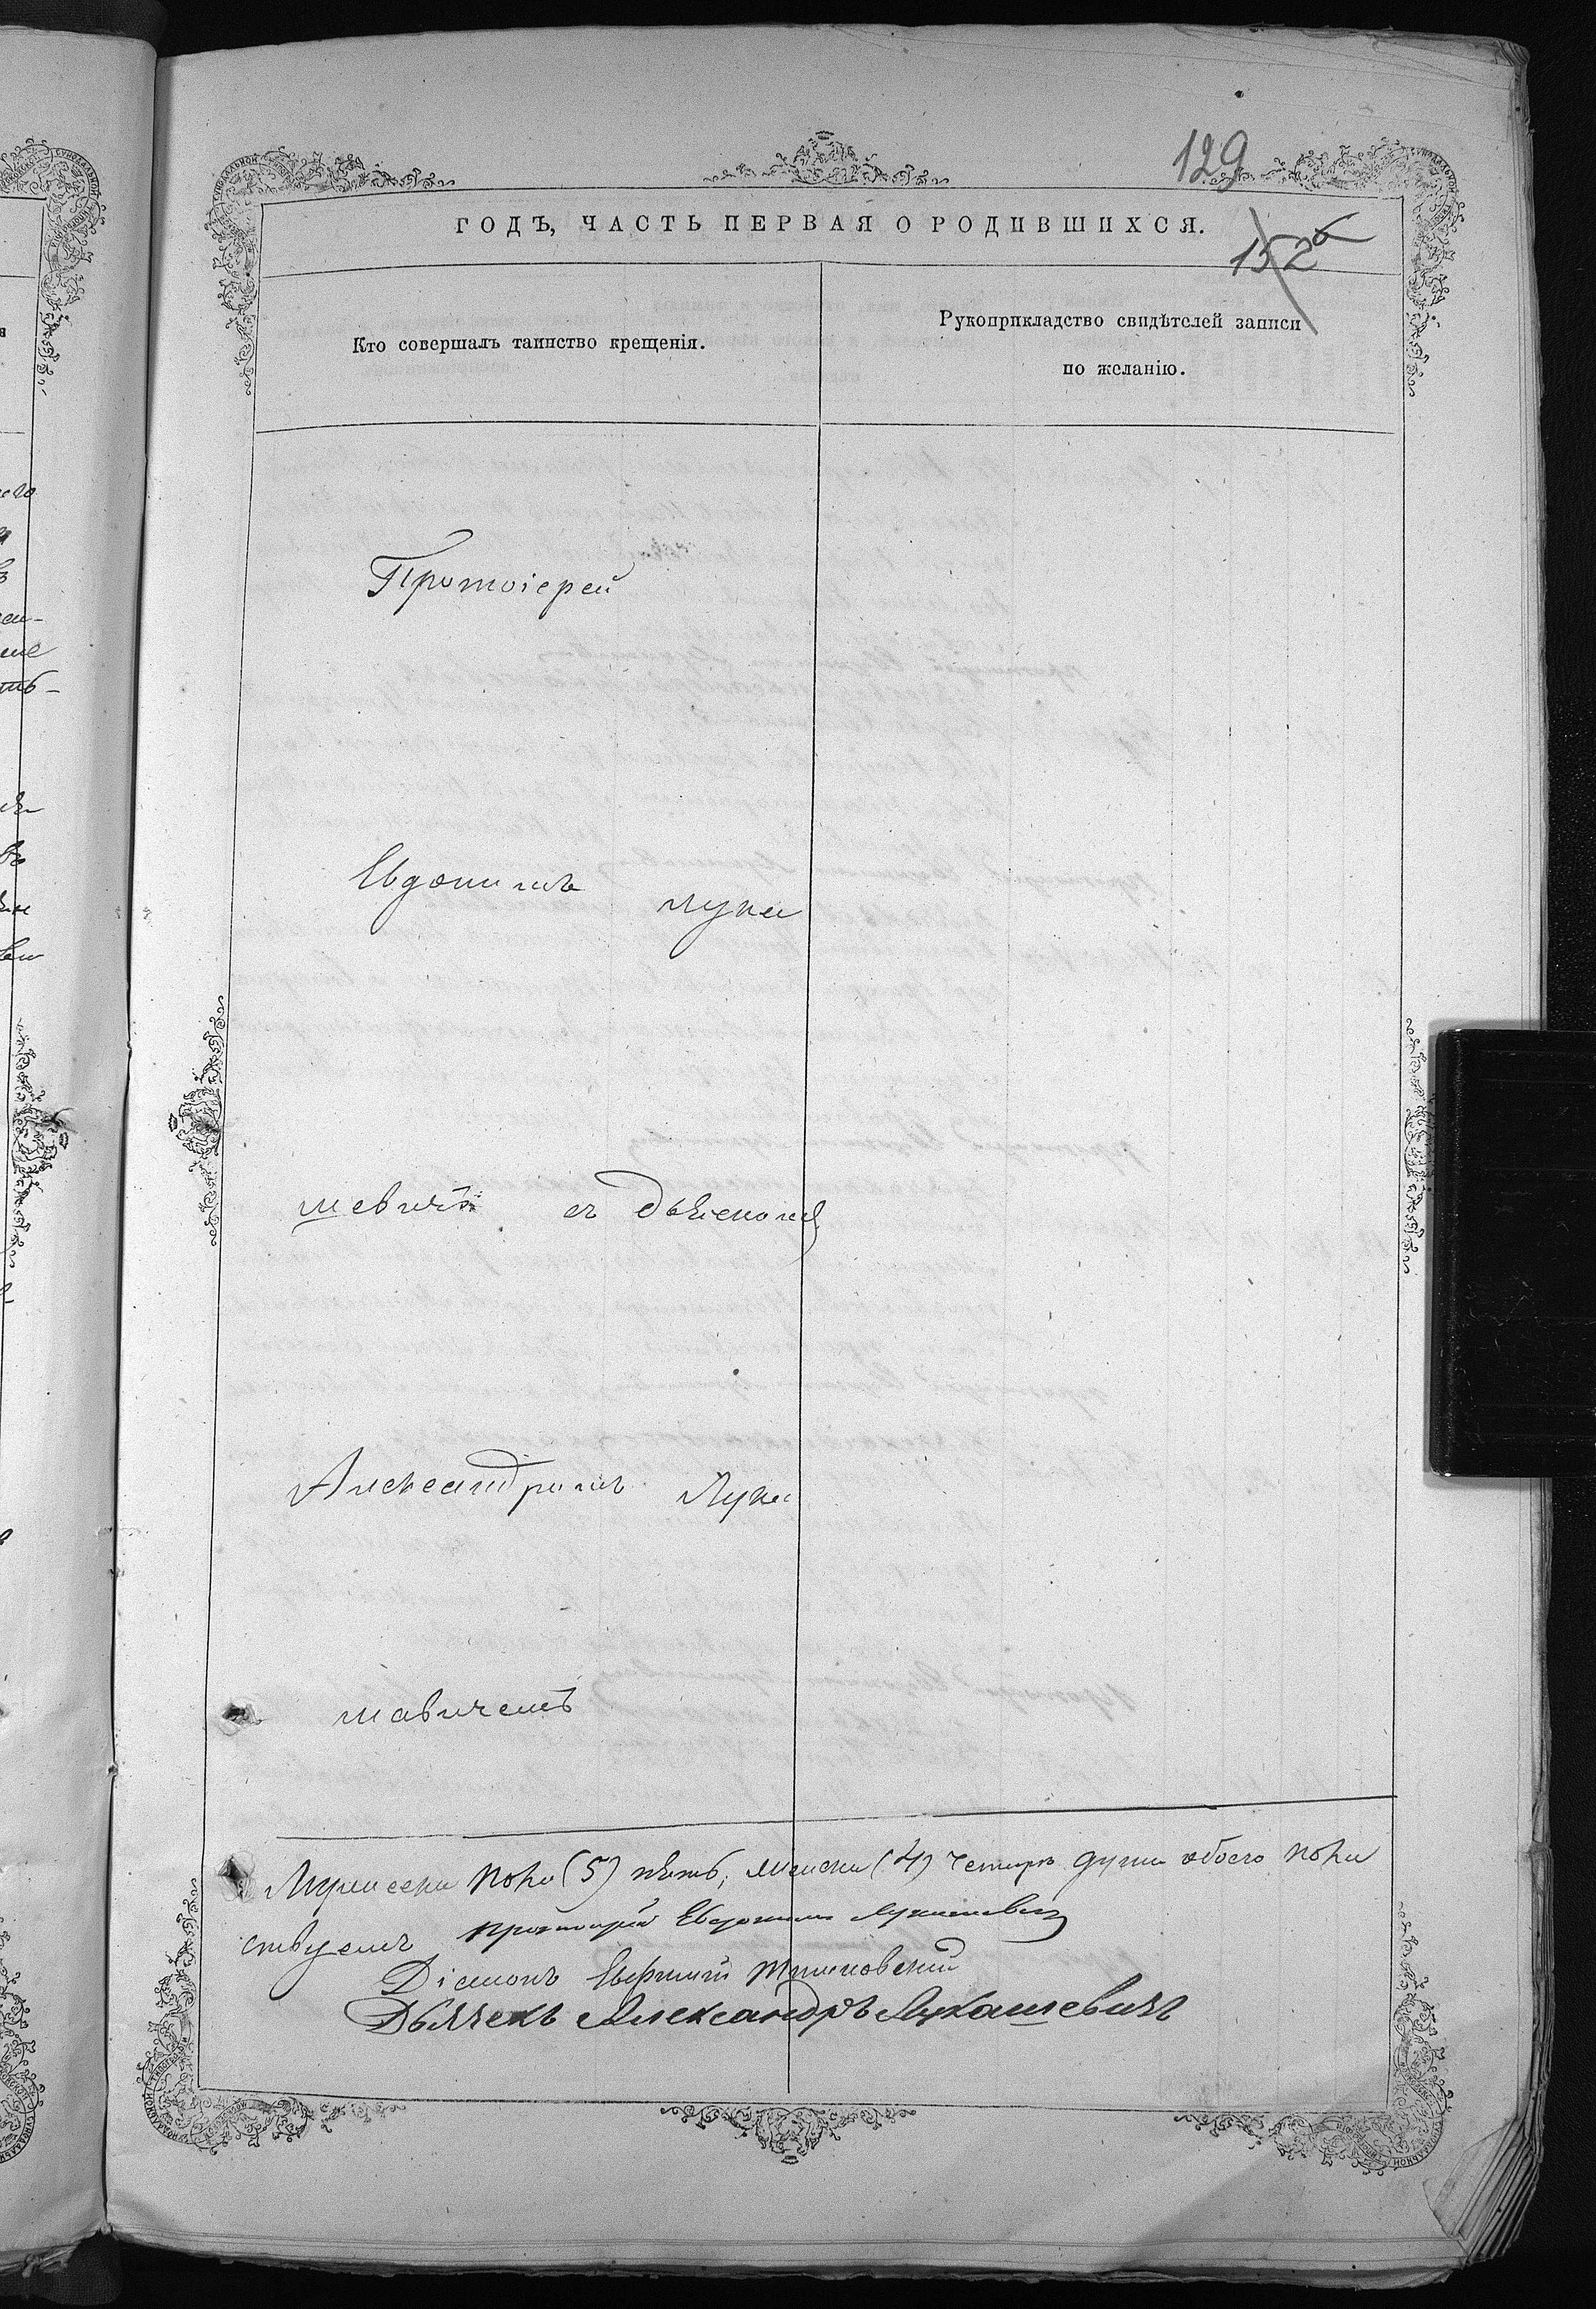 129
ГОДЪ, ЧАСТЬ ПЕРВАЯ О РОДИВШИХСЯ.
152
Кто совершалъ таинство крещенія.
Рукоприкладство свидѣтелей записи
по желанію.
Протоіерей
Евдокимъ Лука
шевичъ съ дьячкомъ
Александромъ Лука
шевичемъ
Мужеска пола (5) пять, женска (4) четыре души обоего пола
ствуемъ Протоіерей Евдокимъ Лукашевичъ
Діаконъ Евфимій
Дьячекъ Александръ Лукашевичъ